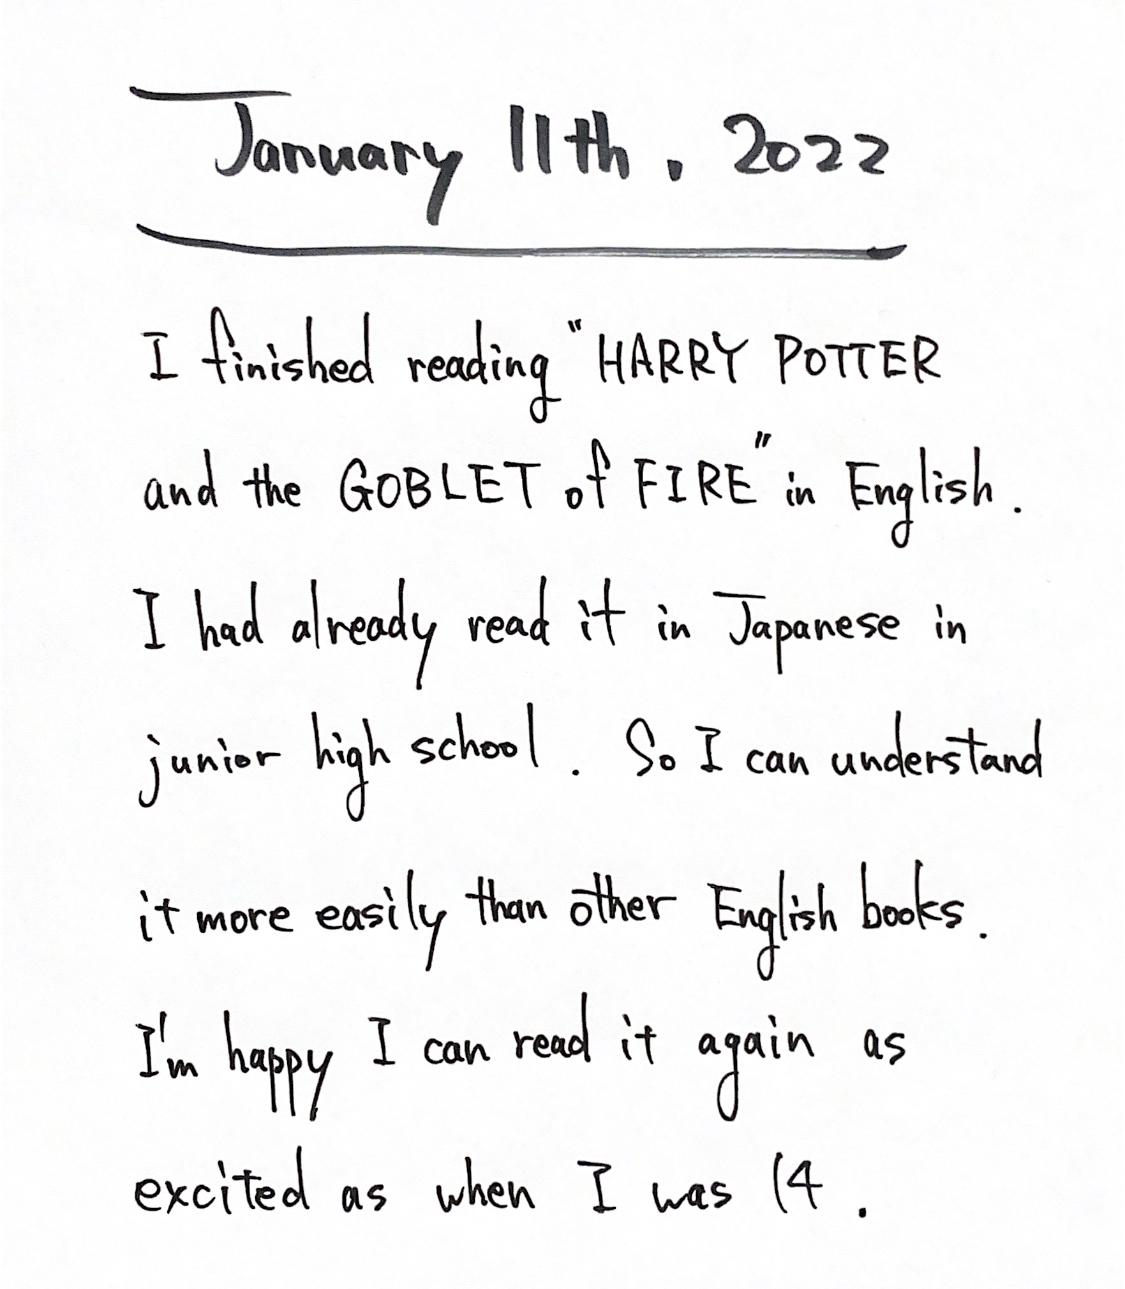 January 11th. 2022
I finished reading "HARRY POTTER
and the GOBLET of FIRE" in English.
I had already read it in Japanese in
junior high school. So I can understand
it more easily than other English books.
I'm happy I can read it again as
excited as when I was 14.